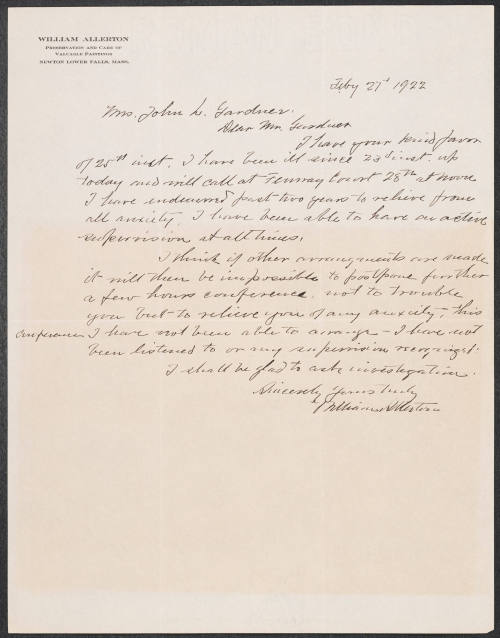 WILLIAM ALLERTON
PRESERVATION AND CARE OF
VALUABLE PAINTINGS
NEWTON LOWER FALLS, MASS.
Feby 27th 1922
Mrs. John L. Gardner.
Dear Mrs. Gardner
I have your kind favor
of 25th inst. I have been ill since 23d inst. up
today and will call at Fenway Court 28th at noon
I have endeavored past two years to relieve from
all anxiety. I have been able to have an active
supervision at all times.
I think if other arrangments are made
it will then be impossible to postpone further
a few hours conference. not to trouble
you but to relieve you of any anxiety, this
conference I have not been able to arrange - I have not
been listened to or my supervision recognized.
I shall be glad to ask investigation.
Sincerely Yours truly
William Allerton